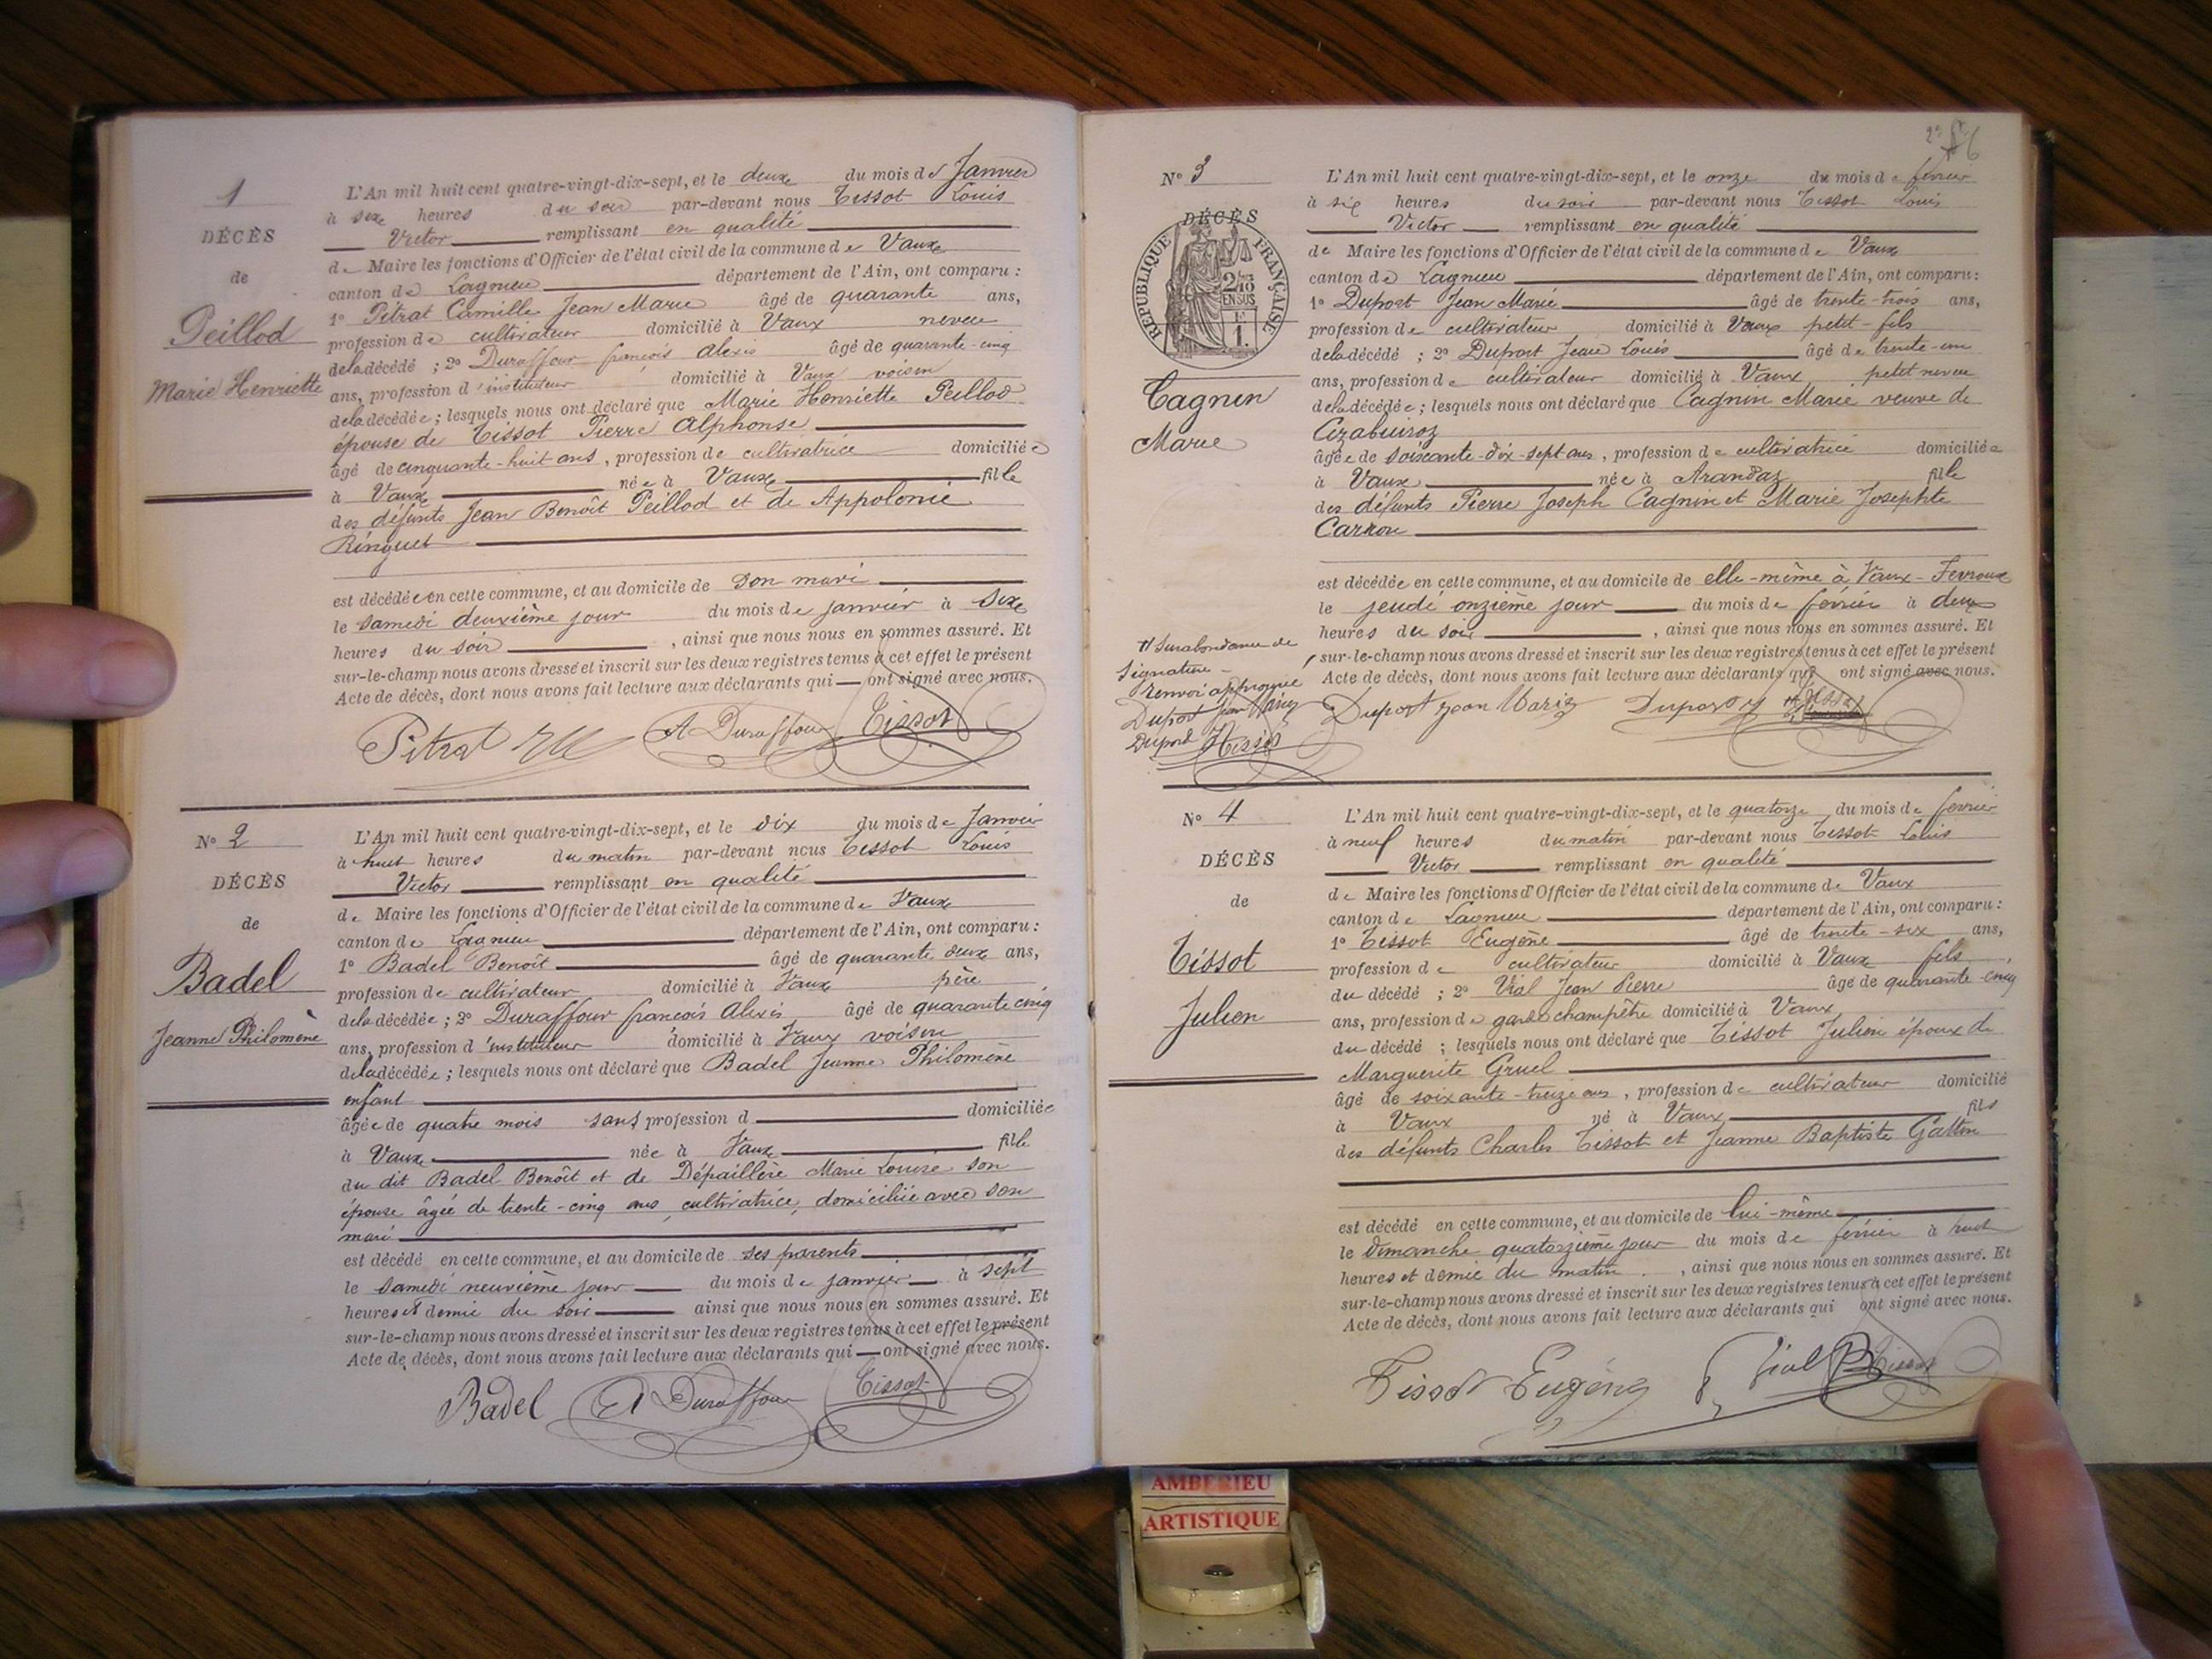 1
DÉCÈS
de
Peillod
Marie Henriette
L'An mil huit cent quatre-vingt-dix-sept, et le deux du mois de Janvier
à six heures du soir par-devant nous Tissot Louis
Victor remplissant en qualité
de Maire les fonctions d'Officier de l'état civil de la commune de Vaux
canton de Lagnieu département de l'Ain, ont comparu :
1º Pitrat Camille Jean Marie âgé de quarante ans,
profession de cultivateur domicilié à Vaux neveu
de la décédé ; 2º Duraffour françois Alexis âgé de quarante-cinq
ans, profession d'instituteur domicilié à Vaux voisin
de la décédée ; lesquels nous ont déclaré que Marie Henriette Peillod
épouse de Tissot Pierre Alphonse
âgé de cinquante-huit ans, profession de cultivatrice domiciliée
à Vaux née à Vaux fille
des défunts Jean Benoît Peillod et de Appolonie
Ringuet
est décédée en cette commune, et au domicile de son mari
le samedi deuxième jour du mois de janvier à six
heures du soir, ainsi que nous nous en sommes assuré. Et
sur-le-champ nous avons dressé et inscrit sur les deux registres tenus à cet effet le présent
Acte de décès, dont nous avons fait lecture aux déclarants qui ont signé avec nous.
Pitrat A Duraffour Tissot
Nº 2
DÉCÈS
de
Badel
Jeanne Philomène
L'An mil huit cent quatre-vingt-dix-sept, et le dix du mois de Janvier
à huit heures du matin par-devant nous Tissot Louis
Victor remplissant en qualité
de Maire les fonctions d'Officier de l'état civil de la commune de Vaux
canton de Lagnieu département de l'Ain, ont comparu :
1º Badel Benoît âgé de quarante deux ans,
profession de cultivateur domicilié à Vaux père
de la décédée ; 2º Duraffour françois Alexis âgé de quarante cinq
ans, profession d'instituteur domicilié à Vaux voisin
de la décédée ; lesquels nous ont déclaré que Badel Jeanne Philomène
enfant
âgée de quatre mois sans profession d domiciliée
à Vaux née à Vaux fille
du dit Badel Benoît et de Dépaillère Marie Louise son
épouse âgée de trente-cinq ans, cultivatrice, domiciliée avec son
mari
est décédé en cette commune, et au domicile de ses parents
le samedi neuvième jour du mois de janvier à sept
heures et demie du soir ainsi que nous nous en sommes assuré. Et
sur-le-champ nous avons dressé et inscrit sur les deux registres tenus à cet effet le présent
Acte de décès, dont nous avons fait lecture aux déclarants qui ont signé avec nous.
Badel A Duraffour Tissot
Nº 3
DÉCÈS
RÉPUBLIQUE FRANÇAISE
2/10 EN SUS
Cagnin
Marie
L'An mil huit cent quatre-vingt-dix-sept, et le onze du mois de février
à six heures du soir par-devant nous Tissot Louis
Victor remplissant en qualité
de Maire les fonctions d'Officier de l'état civil de la commune de Vaux
canton de Lagnieu département de l'Ain, ont comparu :
1º Duport Jean Marie âgé de trente-trois ans,
profession de cultivateur domicilié à Vaux petit-fils
de la décédé ; 2º Duport Jean Louis âgé de trente-un
ans, profession de cultivateur domicilié à Vaux petit neveu
de la décédée ; lesquels nous ont déclaré que Cagnin Marie veuve de
âgée de soixante-dix-sept ans, profession de cultivatrice domiciliée
à Vaux née à Arandaz fille
des défunts Pierre Joseph Cagnin et Marie Josephte
Carron
est décédée en cette commune, et au domicile de elle-même à Vaux-Fevroux
le jeudi onzième jour du mois de février à deux
heures du soir, ainsi que nous nous en sommes assuré. Et
sur-le-champ nous avons dressé et inscrit sur les deux registres tenus à cet effet le présent
Acte de décès, dont nous avons fait lecture aux déclarants qui ont signé avec nous.
Surabondance de
signature
renvoi approuvé
Duport Jean Marie
Duport Tissot
Duport Jean Marie Duport
Nº 4
DÉCÈS
de
Tissot
Julien
L'An mil huit cent quatre-vingt-dix-sept, et le quatorze du mois de février
à neuf heures du matin par-devant nous Tissot Louis
Victor remplissant en qualité
de Maire les fonctions d'Officier de l'état civil de la commune de Vaux
canton de Lagnieu département de l'Ain, ont comparu :
1º Tissot Eugène âgé de trente-six ans,
profession de cultivateur domicilié à Vaux fils
du décédé ; 2º Vial Jean Pierre âgé de quarante cinq
ans, profession de garde champêtre domicilié à Vaux
du décédé ; lesquels nous ont déclaré que Tissot Julien époux de
Marguerite Gruel
âgé de soixante-treize ans, profession de cultivateur domicilié
à Vaux né à Vaux fils
des défunts Charles Tissot et Jeanne Baptiste Gattin
est décédé en cette commune, et au domicile de lui-même
le Dimanche quatorzième jour du mois de février à huit
heures et demie du matin, ainsi que nous nous en sommes assuré. Et
sur-le-champ nous avons dressé et inscrit sur les deux registres tenus à cet effet le présent
Acte de décès, dont nous avons fait lecture aux déclarants qui ont signé avec nous.
Tissot Eugène Vial Tissot
AMBERIEU
ARTISTIQUE